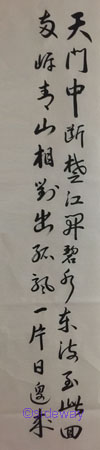 天门中断楚江開碧水东流至此回
两岸青山相對出孤帆一片日邊来